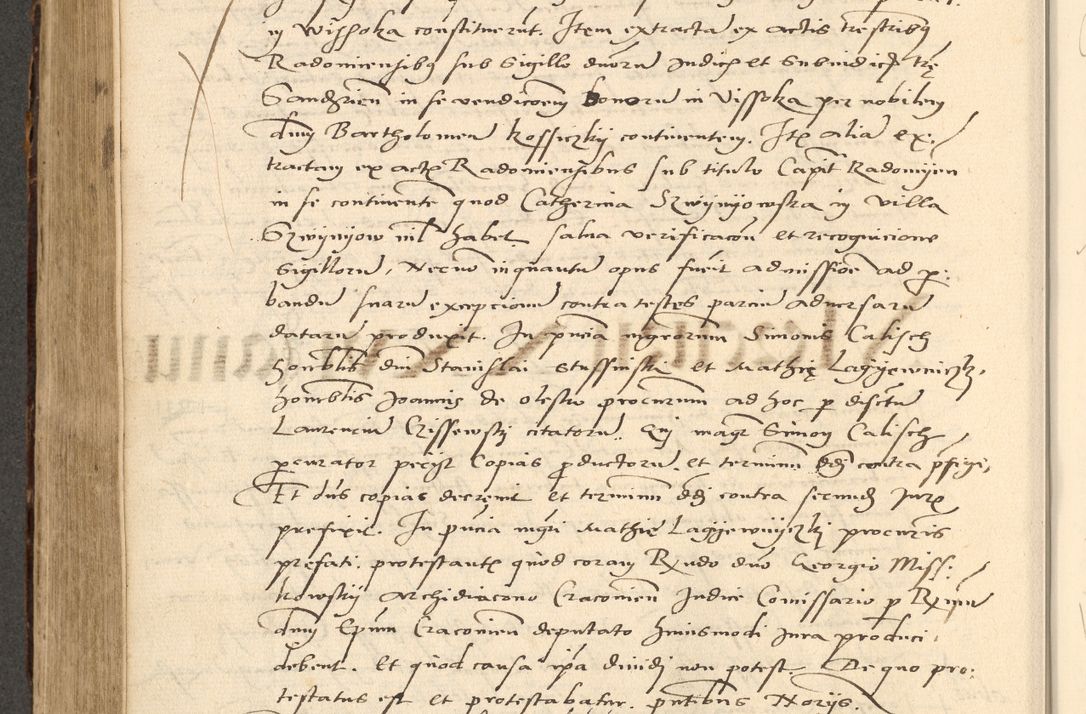 in Wissoka constituerut. Item extracta ex actis trestribq
Radomiensibq sub sigillo duoru Judicis et Subiudicis tre
Sandzien in se vendicoem bonoru in Vissoka per nobilem
dnm Bartholomeu Kossiczkij continentem. Ite alia ex:
tractam ex actis Radomiensibus sub titulo Capit Radomijen
in se continente quod Catherina Szwijnijowska in villa
Szwijnijow nil habet salua verificacon et recognicione
Sigilloru, Necno inquantu opus fuerit admissioe ad p:
bandu suaru excepcionu contra testes parciu aduersaru
dataru produxit. In pncia mgrorum Simonis Calisch
honoblis dni Stanislai et Mathie Lagijewniczkij,
honoblis Joannis de olestro procurum ad hoc p disctu
Laurenciu Czissewskj citatoru. Qui magr Simon Calisch
pcurator pecijt Copias pductoru et terminu ddj contra pfigi,
Et dns copias decreuit et terminu ddj contra secundu Jure
prefixit. In pncia mgri Mathie Lagijewnijczkj procuris
prefati. protestante quod coram Rndo dno Georgio Miss:
kowskij Archidiacono Cracouien Judice Comissario p Rmum
dnm Epum Cracouien deputato huiusmodi jura produci
debent. Et quod causa ipa diuidj non potest. De quo pro:
testatus est et protestabatur. pntibus Norijs.